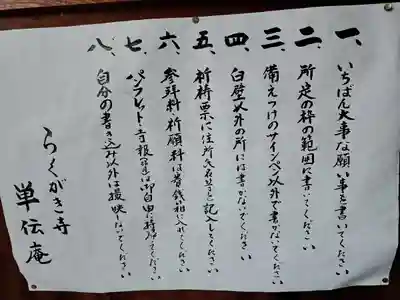 一、いちばん大事な願い事を書いてください
二、所定の枠の範囲に書いてください
三、備えつけのサインペン以外で書かないでください
四、白壁以外の所には書かないでください
五、祈祷票に住所氏名等をご記入してください
六、参拝料・祈願料は賽銭箱に入れてください
七、パンフレット・寺報は御自由に持帰ってください
八、自分の書き込み以外は撮映しないでください
らくがき寺
単伝庵